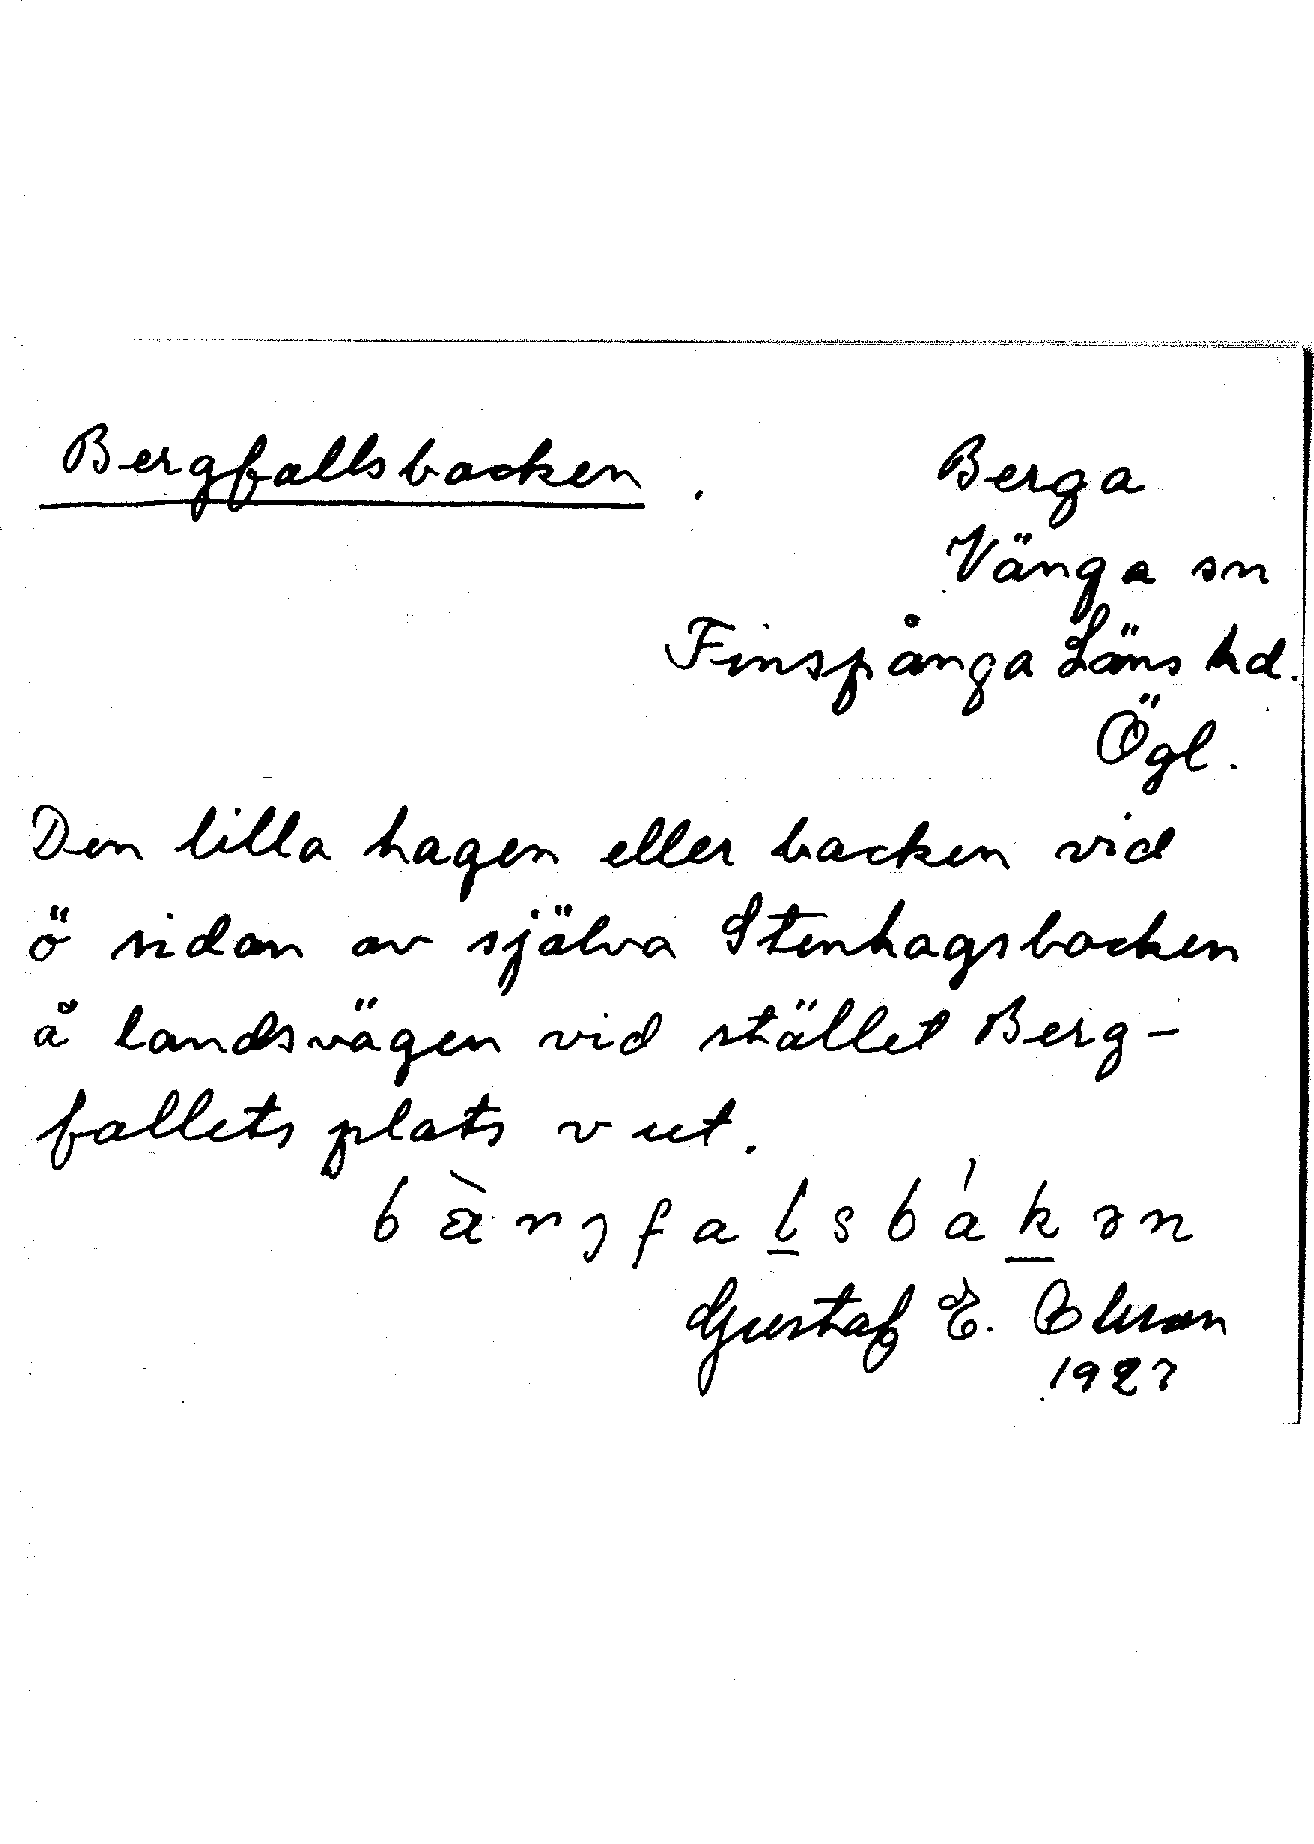 Bergfallsbacken.
Berga
Vänga sn
Finspånga Läns hd.
Ögl.
Den lilla hagen eller backen vid
ö sidan av själva Stenhagsbacken
å landsvägen vid stället Berg-
fallets plats v ut.
Gustaf E.
1927